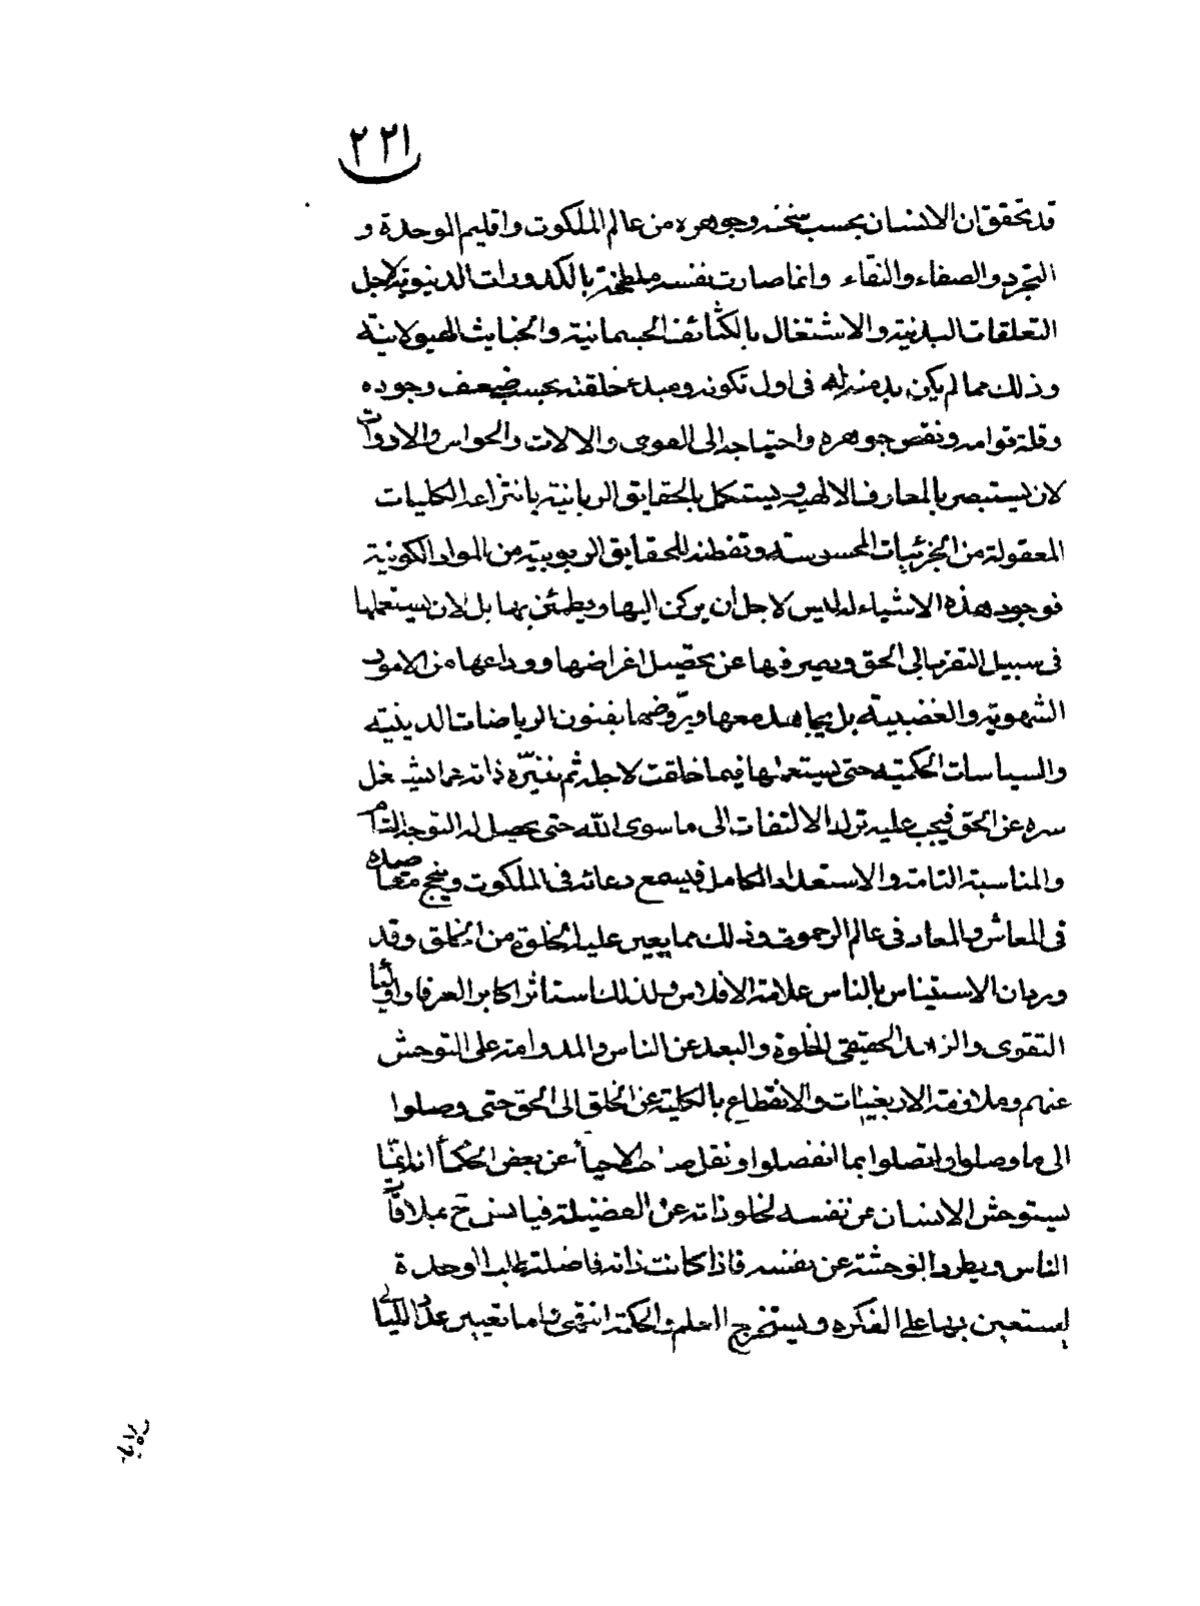 ٢٢١
قد تحقق ان الانسان بحسب سنخه وجوهره من عالم الملكوت واقليم الوحدة و
التجرد والصفاء والنقاء وانما صارت نفسه ملطخة بالكدورات الدنيوية لاجل
التعلقات البدنية والاشتغال بالكثائف الجسمانية والخبايث الهيولانية
وذلك مما لم يكن بد منه له فى اول تكونه ومبدء خلقته بحسب ضعف وجوده
وقلة قوامه ونقص جوهره واحتياجه الى القوى والالات والحواس والادوات
لان يستبصر بالمعارف الالهية ويستكمل بالحقايق الربانية بانتزاعه الكليات
المعقولة من الجزئيات المحسوسة وتفطنه للحقايق الربوبية من المواد الكونية
فوجود هذه الاشياء له ليس لاجل أن يركن اليها ويطمئن بها بل لان يستعملها
فى سبيل التقرب الى الحق ويصرفها عن تحصيل اغراضها ودواعيها من الامور
الشهوية والغضبية بل يجاهد معها ويروّضها بفنون الرياضات الدينية
والسياسات الحكمية حتى يستعملها فيما خلقت لاجله ثم ينزّه ذاته عما يشغل
سره عن الحق فيجب عليه ترك الالتفات الى ما سوى الله حتى يحصل له التوجه التام
والمناسبة التامة والاستعداد الكامل فيسمع دعائه فى الملكوت وينجح مقاصده
فى المعاش والمعاد فى عالم الرحموت وذلك مما يعين عليه الخلوة من الخلق وقد
ورد ان الاستيناس بالناس علامة الافلاس ولذلك استأثر اكابر العرفا واولياء
التقوى والزهد الحقيقى الخلوة والبعد عن الناس والمداومة على التوحش
عنهم وملازمة الاربعينات والانقطاع بالكلية عن الخلق الى الحق حتى وصلوا
الى ما وصلوا واتصلوا بما انفصلوا ونقل صاحب الاحياء عن بعض الحكماء انه انما
يستوحش الانسان من نفسه لخلو ذاته عن الفضيلة فيانس ح بملاقات
الناس ويطرد الوحشة عن نفسه فاذا كانت ذاته فاضلة طلب الوحدة
ليستعين بها على الفكره ويستخرج العلم والحكمة انتهى واما تعيين عدد الليالى